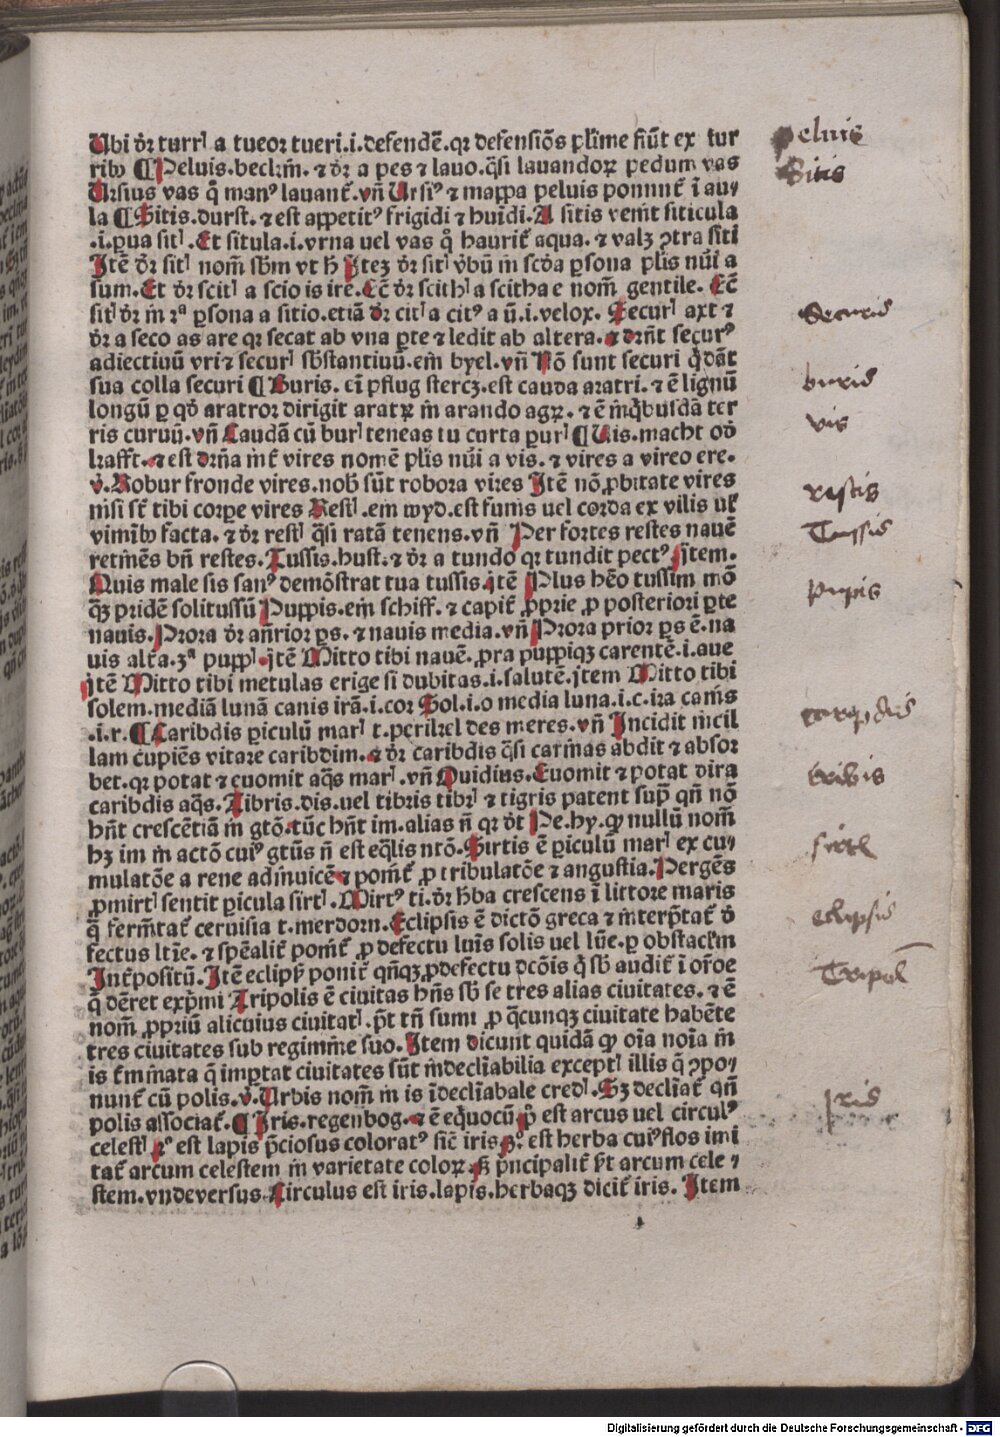 Ubi dr̄ turrꝭ a tueor tueri.i.defendē.qr defensiōs plīme fiūt ex tur
ribꝫ ¶ Peluis.beckm̄.⁊ dr̄ a pes ⁊ lauo.q̄si lauandoꝝ pedum vas
Ursius vas q̄ manꝰ lauant̄.vn̄ Ursiꝰ ⁊ mappa peluis ponunt̄ ī au⸗
la ¶ Sitis.durst.⁊ est appetitꝰ frigidi ⁊ huīdi.A sitis venit siticula
.i.ꝑua sitꝭ.Et situla.i.vrna uel vas q̊ haurit̄ aqua.⁊ valꝫ ꝯtra siti
Itē dr̄ sitꝭ nom̄ sbm̄ vt h̄ Iteꝫ dr̄ sitꝭ v̄bū in scd̄a ꝑsona plīs nūi a
sum.Et dr̄ scitꝭ a scio is ire.Etē dr̄ scithꝭ a scitha e nom̄ gentile.Etē
sitꝭ dr̄ in 2ª ꝑsona a sitio.etiā dr̄ citꝭ a citꝰ a ū.i.velox.Securꝭ axt ⁊
dr̄ a seco as are qr secat ab vna ꝑte ⁊ ledit ab altera.⁊ drn̄t securꝰ
adiectiuū vri ⁊ securꝭ sb̄stantiuū.em̄ byel.vn̄ Nō sunt securi q̄ dāt
sua colla securi ¶ Buris.eī pflug stercz.est cauda aratri.⁊ ē lignū
longū ꝑ qd̄ aratror dirigit aratꝝ in arando agꝝ.⁊ ē in q̄busdā ter
ris curuū.vn̄ Caudā cū burꝭ teneas tu curta purꝭ ¶ Uis.macht od̄
krafft.⁊ est drn̄a int̄ vires nomē plīs nūi a vis.⁊ vires a vireo ere.
v̄.Robur fronde vires.nob̄ sūt robora vires Itē nō ꝓbitate vires
nisi st̄ tibi corpe vires Restꝭ.em wyd.est funis uel corda ex vilis ul̄
vimībꝫ facta.⁊ dr̄ restꝭ q̄si ratā tenens.vn̄ Per fortes restes nauē
retinēs bn̄ restes.Tussis.hust.⁊ dr̄ a tundo qr tundit pectꝰ Item.
Quis male sis sanꝰ demōstrat tua tussis.itē Plus hēo tussim mō
q̄ꝫ pridē solitussū Puppis.em̄ schiff.⁊ capit̄ ꝓprie ꝓ posteriori ꝑte
nauis.Prora dr̄ an̄rior ꝑs.⁊ nauis media.vn̄ Prora prior ꝑs ē.na
uis alt̄a.3ª puppꝭ.itē Mitto tibi nauē.ꝓra puppiqꝫ carentē.i.aue
itē Mitto tibi metulas erige si dubitas.i.salutē.item Mitto tibi
solem.mediā lunā canis irā.i.cor Sol.i.o media luna.i.c.ira canis
.i.r.¶ Caribdis ꝑiculū marꝭ t.perikel des meres.vn̄ Incidit in cil
lam cupiēs vitare caribdim.⁊ dr̄ caribdis q̄si carinas abdit ⁊ absor
bet.qr potat ⁊ euomit aq̄s marꝭ.vn̄ Ouidius.Euomit ⁊ potat dira
caribdis aq̄s.Tibris.dis.uel tibris tibrꝭ ⁊ tigris patent sup̄ qn̄ nō
hn̄t crescētiā in gtō.tūc hn̄t im.alias n̄ qr dt̄ Pe.hy.ꝙ nullū nom̄
hꝫ im in actō cuiꝰ gtūs n̄ est eq̄lis ntō.Sirtis ē ꝑiculū marꝭ ex cu⸗
mulatōe a rene adinuicē ⁊ pomt̄ ꝓ tribulatōe ⁊ angustia.Pergēs
ꝓmirtꝭ sentit ꝑicula sirtꝭ.Mirtꝰ ti.dr̄ hb̄a crescens ī littore maris
q̄ ferm̄tat̄ ceruisia t.merdorn.Eclipsis ē dictō greca ⁊ interp̄tat̄ d̄
fectus ltīe.⁊ spēalit̄ pomt̄ ꝓ defectu luīs solis uel lūe.ꝑ obstaclm̄
Int̄positū.Itē eclipsꝭ ponit̄ qn̄qꝫ ꝓ defectu dcōis q̄ sb̄ audit̄ ī or̄oe
q̄ dēret exp̄mi Tripolis ē ciuitas hn̄s sb̄ se tres alias ciuitates.⁊ ē
nom̄ ꝓpriū alicuius ciuitatꝭ.p̄t tn̄ sumi ꝓ q̄cunqꝫ ciuitate habēte
tres ciuitates sub regimīne suo.Item dicunt quidā ꝙ oīa noīa in
is t̄minata q̄ imp̄tat ciuitates sūt indeclīabilia exceptꝭ illis q̄ ꝯpo⸗
nunt̄ cū polis.v̄.Urbis nom̄ in is īdeclīabale credꝭ.Sꝫ declīat̄ qn̄
polis associat̄.¶ Iris.regenbog.⁊ ē eq̄uocū p̊ est arcus uel circulꝰ
celestꝭ 2º est lapis p̄ciosus coloratꝰ sic̄ iris 3º est herba cuiꝰ flos imi
tat̄ arcum celestem in varietate coloꝝ.sꝫ p̄ncipalit̄ st̄ arcum cele⸗
stem.vnde versus.Circulus est iris.lapis.herbaqꝫ dicit̄ iris. Item
peluis
Sitis
Securis
buris
vis
restis
Tussis
pupis
eclipsis
Tripol
Iris
Digitalisierung gefördert durch die Deutsche Forschungsgemeinschaft - DFG